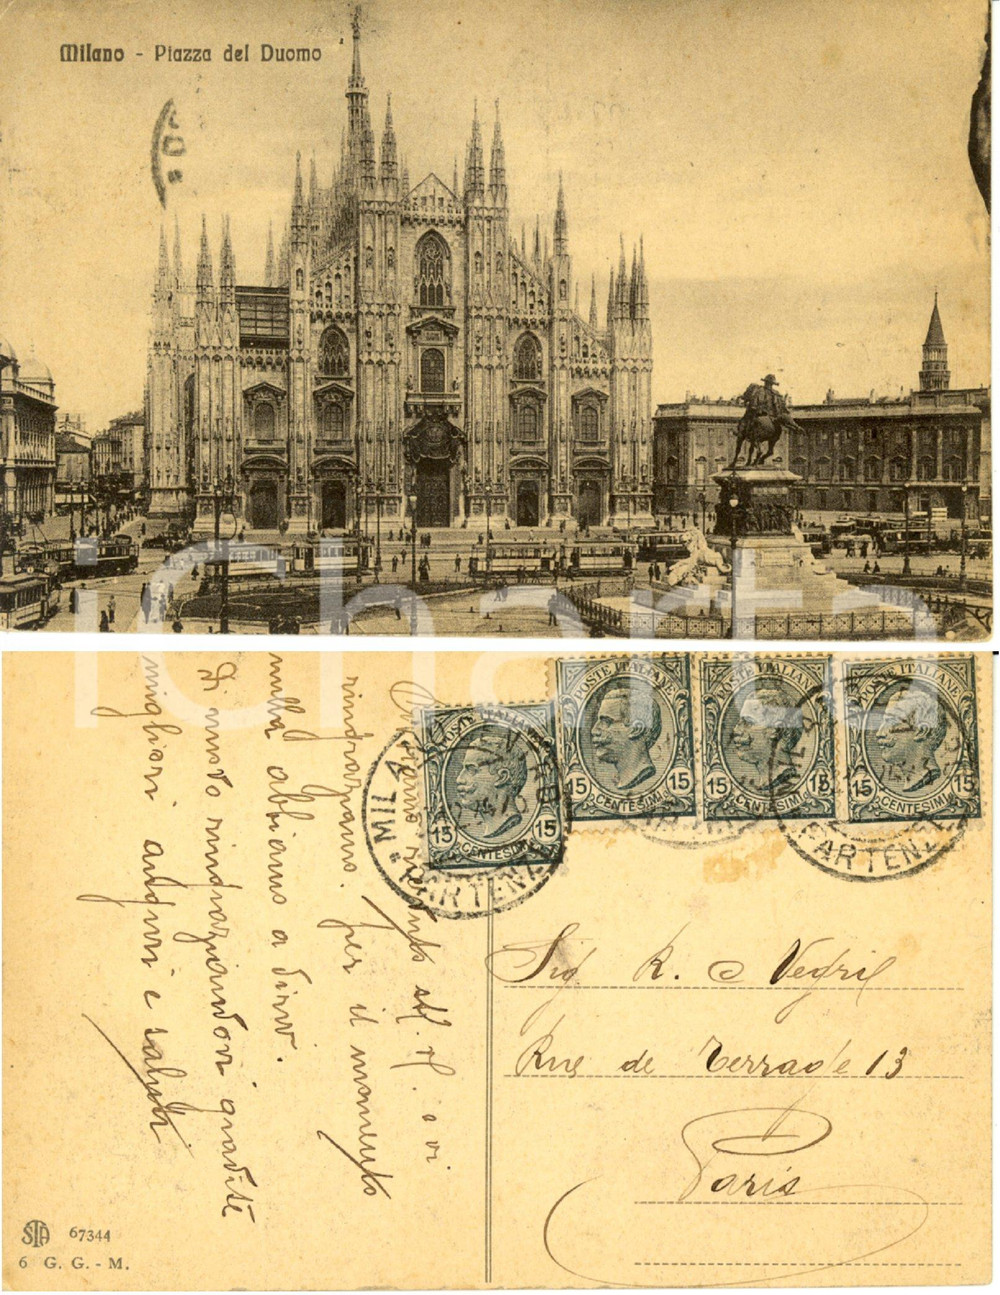 Milano - Piazza del Duomo
iCharta
ringraziamo. per il momento
nulla abbiamo a dirvi.
Di nuovo ringraziandovi gradite
migliori auguri e saluti
POSTE ITALIANE
15 CENTESIMI 15
POSTE ITALIANE
15 CENTESIMI 15
POSTE ITALIANE
15 CENTESIMI 15
POSTE ITALIANE
15 CENTESIMI 15
MILANO
PARTENZA
PARTENZA
Sig. R.
Rue de 13
Paris
STA 67344
6 G. G. - M.